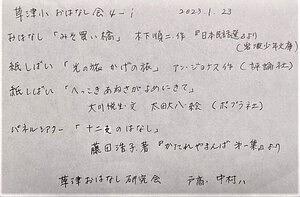 草津小 おはなし会 4-1 2023.1.23
おはなし 「みそ買い橋」 木下順二作 『日本民話選』より
(岩波少年文庫)
紙しばい 「光の旅 かげの旅」 アン・ジョナス作 (評論社)
紙しばい 「へっこきあねさがよめにきて」
大川悦生・文 太田大八・絵 (ポプラ社)
パネルシアター 「十二支のはなし」
藤田浩子著 『かたれやまんば 第一集』より
草津おはなし研究会 中村